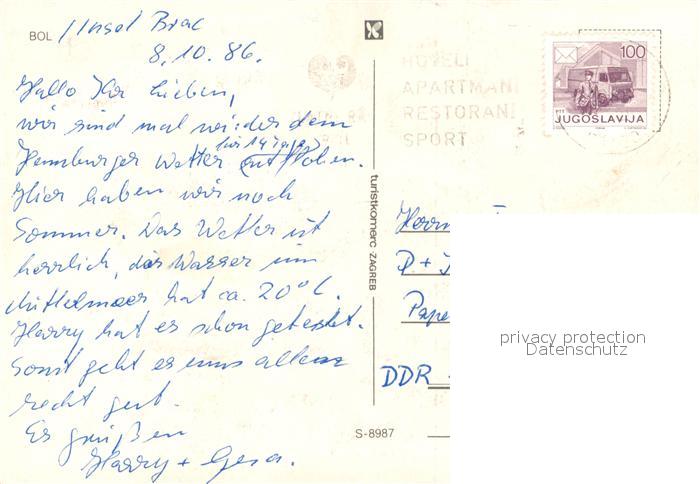 BOL / Insel Brac
8.10.86.
Hallo Ihr Lieben,
wir sind mal wieder dem
für 14 Tage
Hamburger Wetter entflohen.
Hier haben wir noch
Sommer. Das Wetter ist
herrlich, das Wasser im
Mittelmeer hat ca. 20°C.
Harry hat es schon getestet.
Sonst geht es uns allen
recht gut.
Es grüßen
Harry + Gesa.
HOTELI
APARTMANI
RESTORANI
SPORT
100
PTT
JUGOSLAVIJA
turistkomerc ZAGREB
Herrn
P. +
DDR
S-8987
privacy protection
Datenschutz